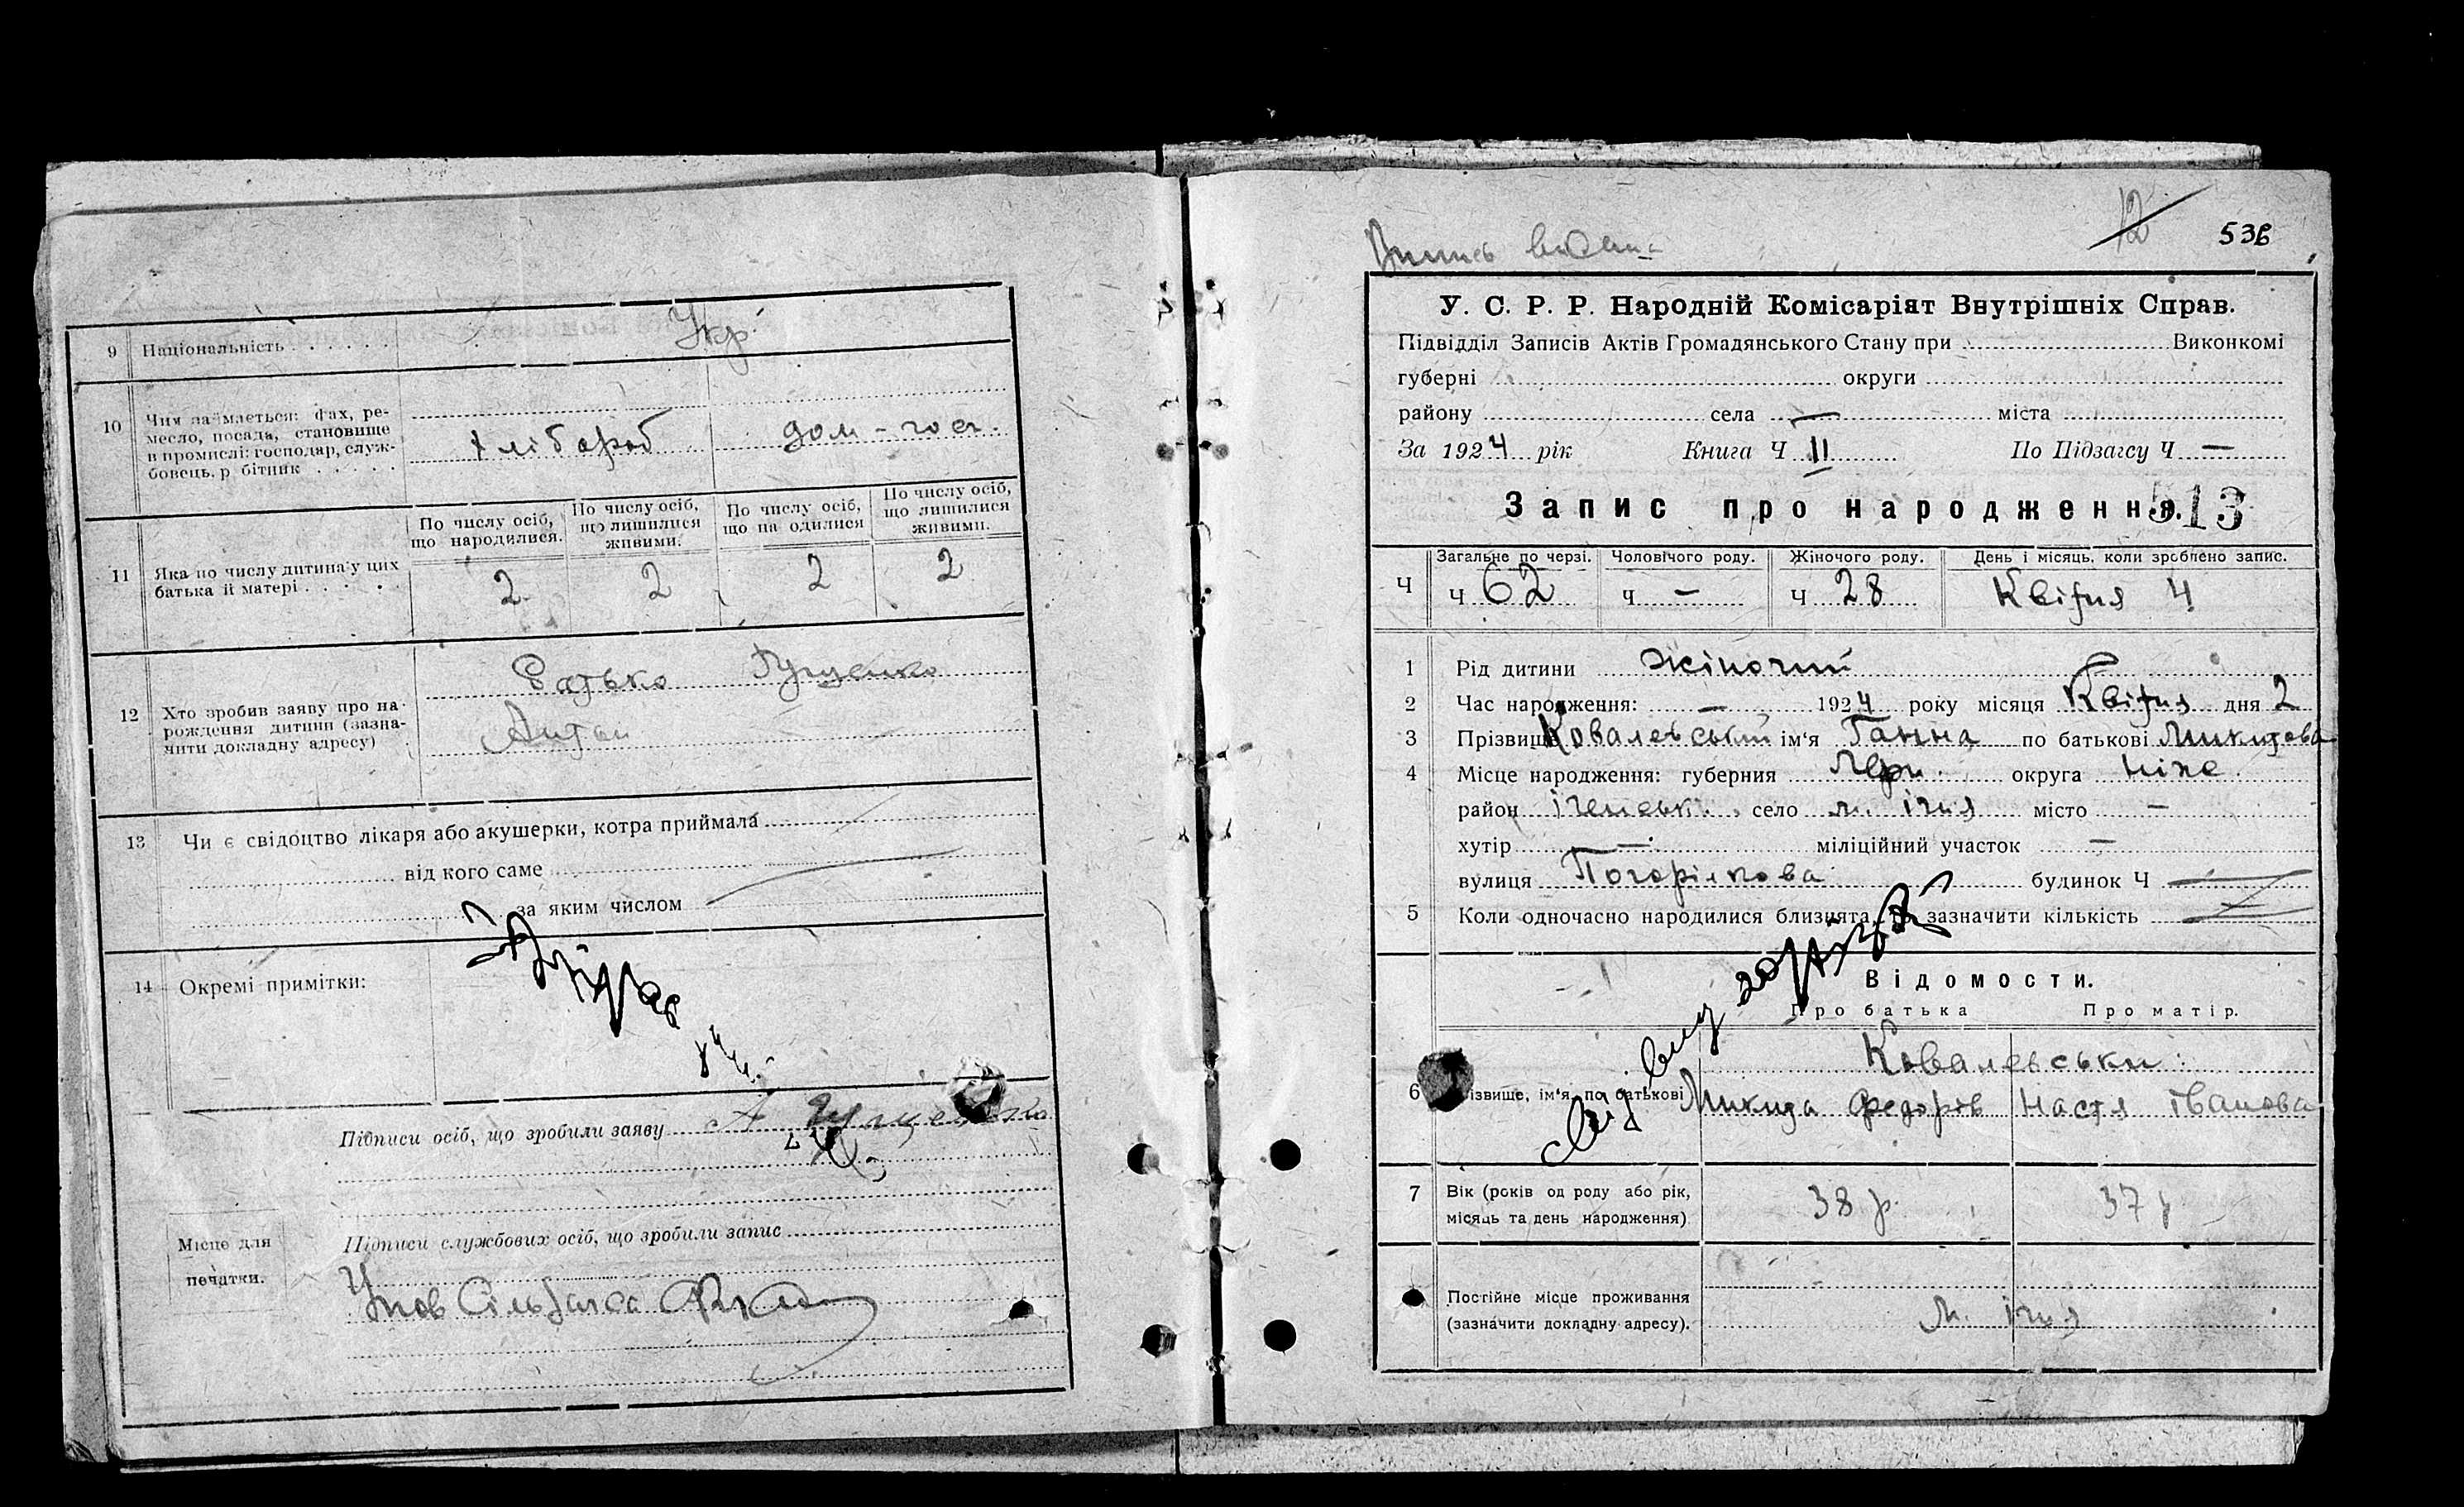 9 Національність Укр.
10 Чим займається: фах, ре-
месло, посада, становище
в промислі: господар, служ-
бовець. р бітник
хлібороб дом-госп.
По числу осіб, що народилися. По числу осіб, що лишилися живими. По числу осіб, що на одилися По числу осіб, що лишилися живими.
11 Яка по числу дитина у цих
батька й матері
2 2 2 2
12 Хто зробив заяву про на-
рождення дитини (зазна-
чити докладну адресу)
Батько Гуценко
Антон
13 Чи є свідоцтво лікаря або акушерки, котра приймала
від кого саме
за яким числом
14 Окремі примітки:
Підписи осіб, що зробили заяву А Гуценко
Місце для
печатки.
Підписи службових осіб, що зробили запис
Упов Сільзагса
Випись видана
12 536
У. С. Р. Р. Народній Комісаріят Внутрішніх Справ.
Підвідділ Записів Актів Громадянського Стану при Виконкомі
губерні округи
району села — міста
За 1924 рік Книга Ч II По Підзагсу Ч —
Запис про народження. 513
Загальне по черзі. Чоловічого роду. Жіночого роду. День і місяць, коли зроблено запис.
Ч Ч 62 Ч — Ч 28 Квітня 4
1 Рід дитини жіночий
2 Час народження: — 1924 року місяця Квітня дня 2
3 Прізвище Ковалевський ім'я Ганна по батькові Микитова
4 Місце народження: губерния Черн. округа Ніже.
район Іченськ. село м. Ічня місто —
хутір — міліційний участок —
вулиця Погорілкова будинок Ч
5 Коли одночасно народилися близнята, то зазначити кількість
Відомости.
Про батька Про матір.
Ковалевськи:
6 ізвище, ім'я, по батькові Микита Федорів Настя Іванова
7 Вік (років од роду або рік,
місяць та день народження)
38 р. 37 р
Постійне місце проживання
(зазначити докладну адресу).
м. Ічня